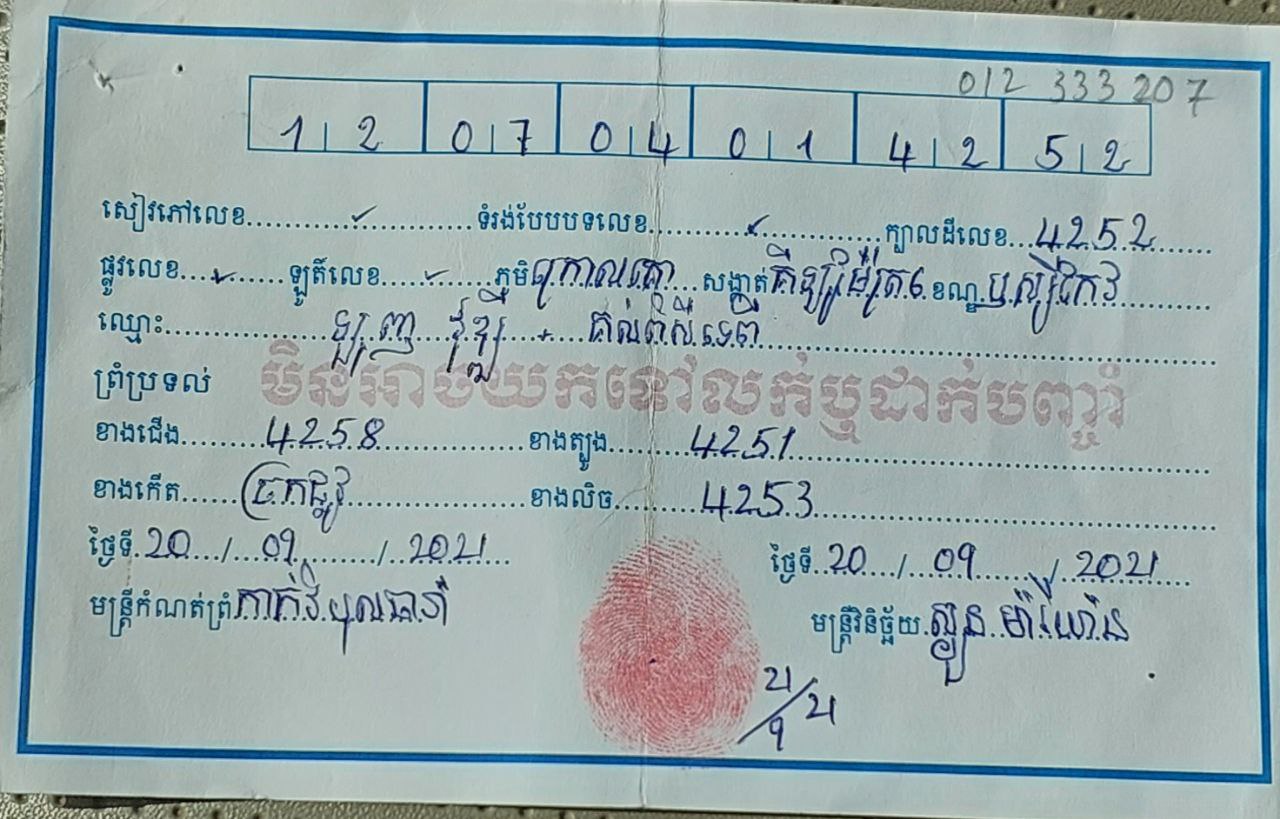 012 333 207
1 2 0 7 0 4 0 1 4 2 5 2
សៀវភៅលេខ........✓........ទំរង់បែបបទលេខ........✓........ក្បាលដីលេខ...4252
ផ្លូវលេខ...✓...ឡូតិ៍លេខ...✓...ភូមិ ក្រោលគោ...សង្កាត់ គីឡូម៉ែត្រ៦ ខណ្ឌ ឫស្សីកែវ
ឈ្មោះ
ព្រំប្រទល់
មិនអាចយកទៅលក់ឬដាក់បញ្ចាំ
ខាងជើង........4258........ខាងត្បូង........4251
ខាងកើត......ច្រកផ្លូវ........ខាងលិច........4253
ថ្ងៃទី.20.../...09.../...2021 ថ្ងៃទី.20.../...09.../...2021
មន្ត្រីកំណត់ព្រំ មន្ត្រីវិនិច្ឆ័យ